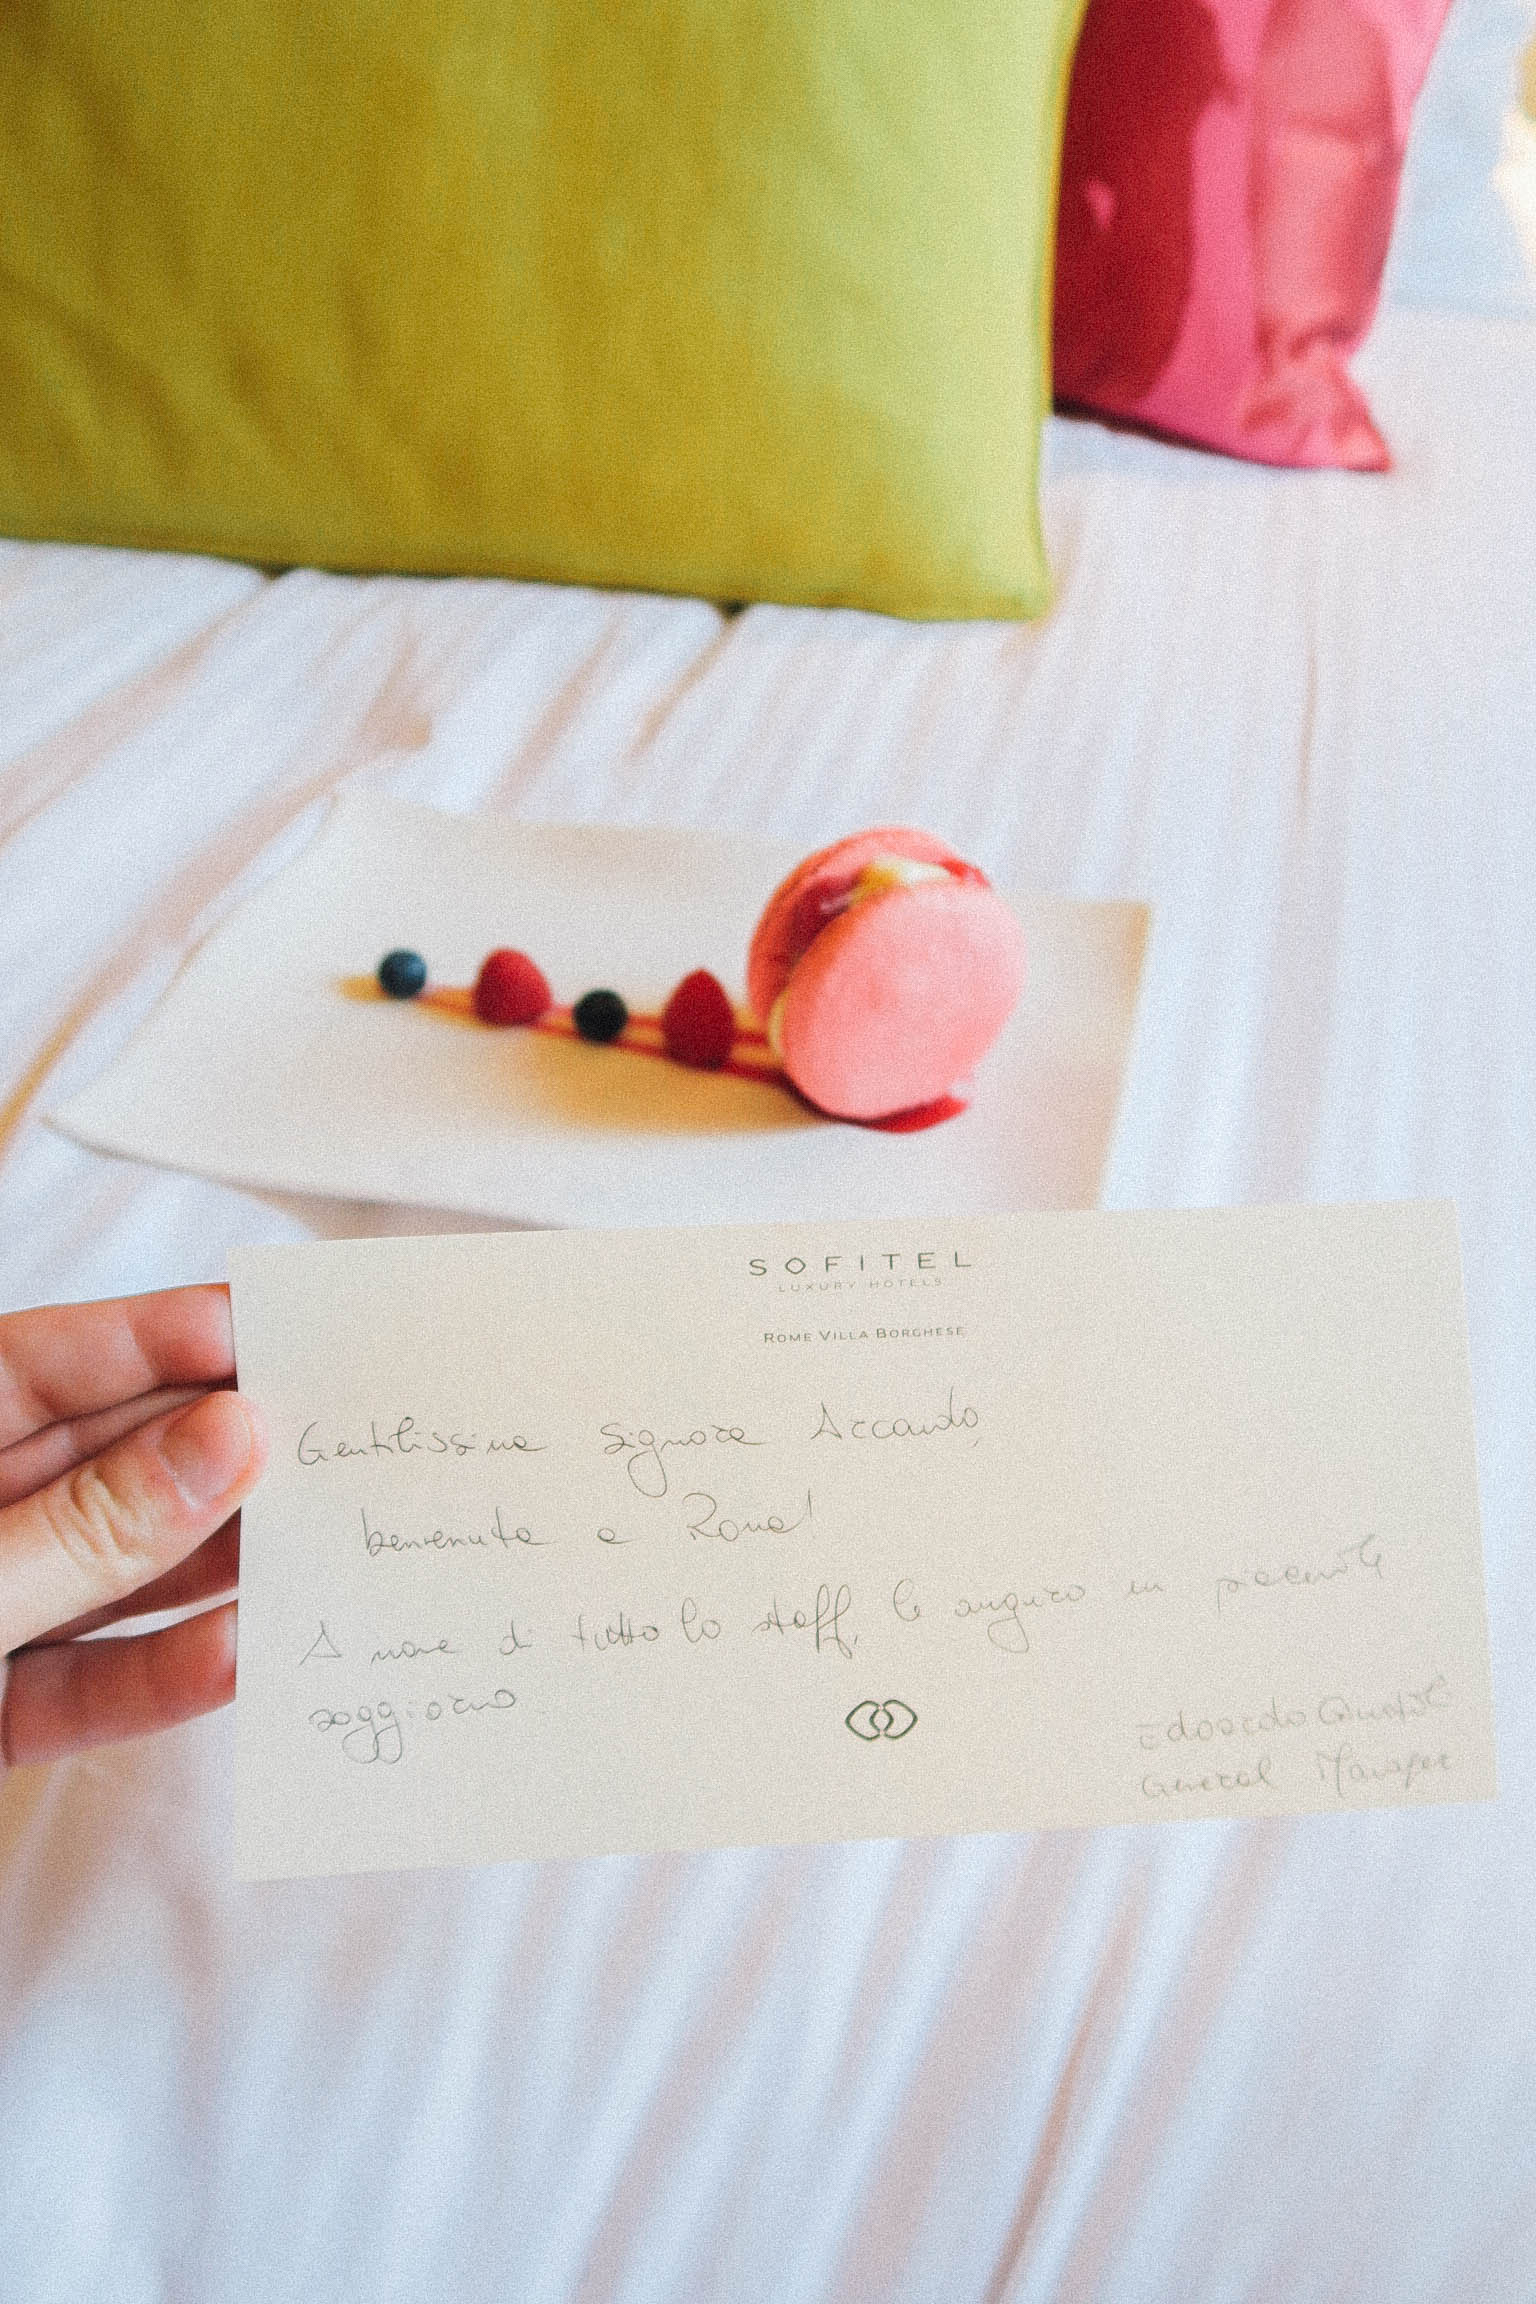 SOFITEL
LUXURY HOTELS
ROME VILLA BORGHESE
Gentilissima Signora Accardo,
benvenuta a Roma!
A nome di tutto lo staff, le auguro un piacevole
soggiorno.
Edoardo
General Manager